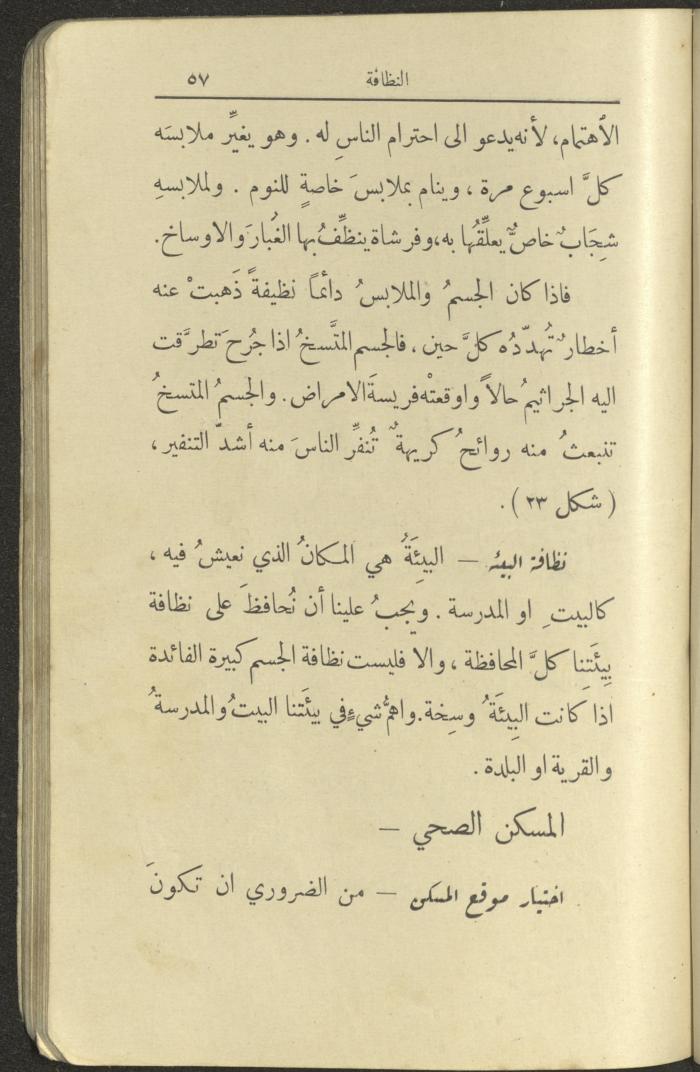 النظافة ٥٧
الأهتمام، لأنه يدعو الى احترام الناسِ له. وهو يغيِّر ملابسَه
كلَّ اسبوع مرة، وينام بملابسَ خاصةٍ للنوم. ولملابسهِ
شِجَابٌ خاصٌّ يعلِّقُها به، وفرشاة ينظِّفُ بها الغُبارَ والاوساخ.
فاذا كان الجسمُ والملابسُ دائمًا نظيفةً ذَهبتْ عنه
أخطارٌ تُهدّدُه كلَّ حين، فالجسم المتَّسخُ اذا جُرحَ تطرَّقت
اليه الجراثيمُ حالاً واوقعتْه فريسةَ الامراض. والجسمُ المتسخُ
تنبعثُ منه روائحُ كريهةٌ تُنفِّر الناسَ منه أشدّ التنفير،
(شكل ٢٣).
نظافة البيئة — البيئَةُ هي المكانُ الذي نعيشُ فيه،
كالبيتِ او المدرسة. ويجبُ علينا أن نُحافظَ على نظافة
بِيئَتِنا كلَّ المحافظة، والا فليست نظافة الجسم كبيرة الفائدة
اذا كانت البِيئَةُ وسِخة. واهمُّ شيءٍ في بيئَتنا البيتُ والمدرسةُ
والقرية او البلدة.
المسكن الصحي —
اختيار موقع المسكن — من الضروري ان تكونَ